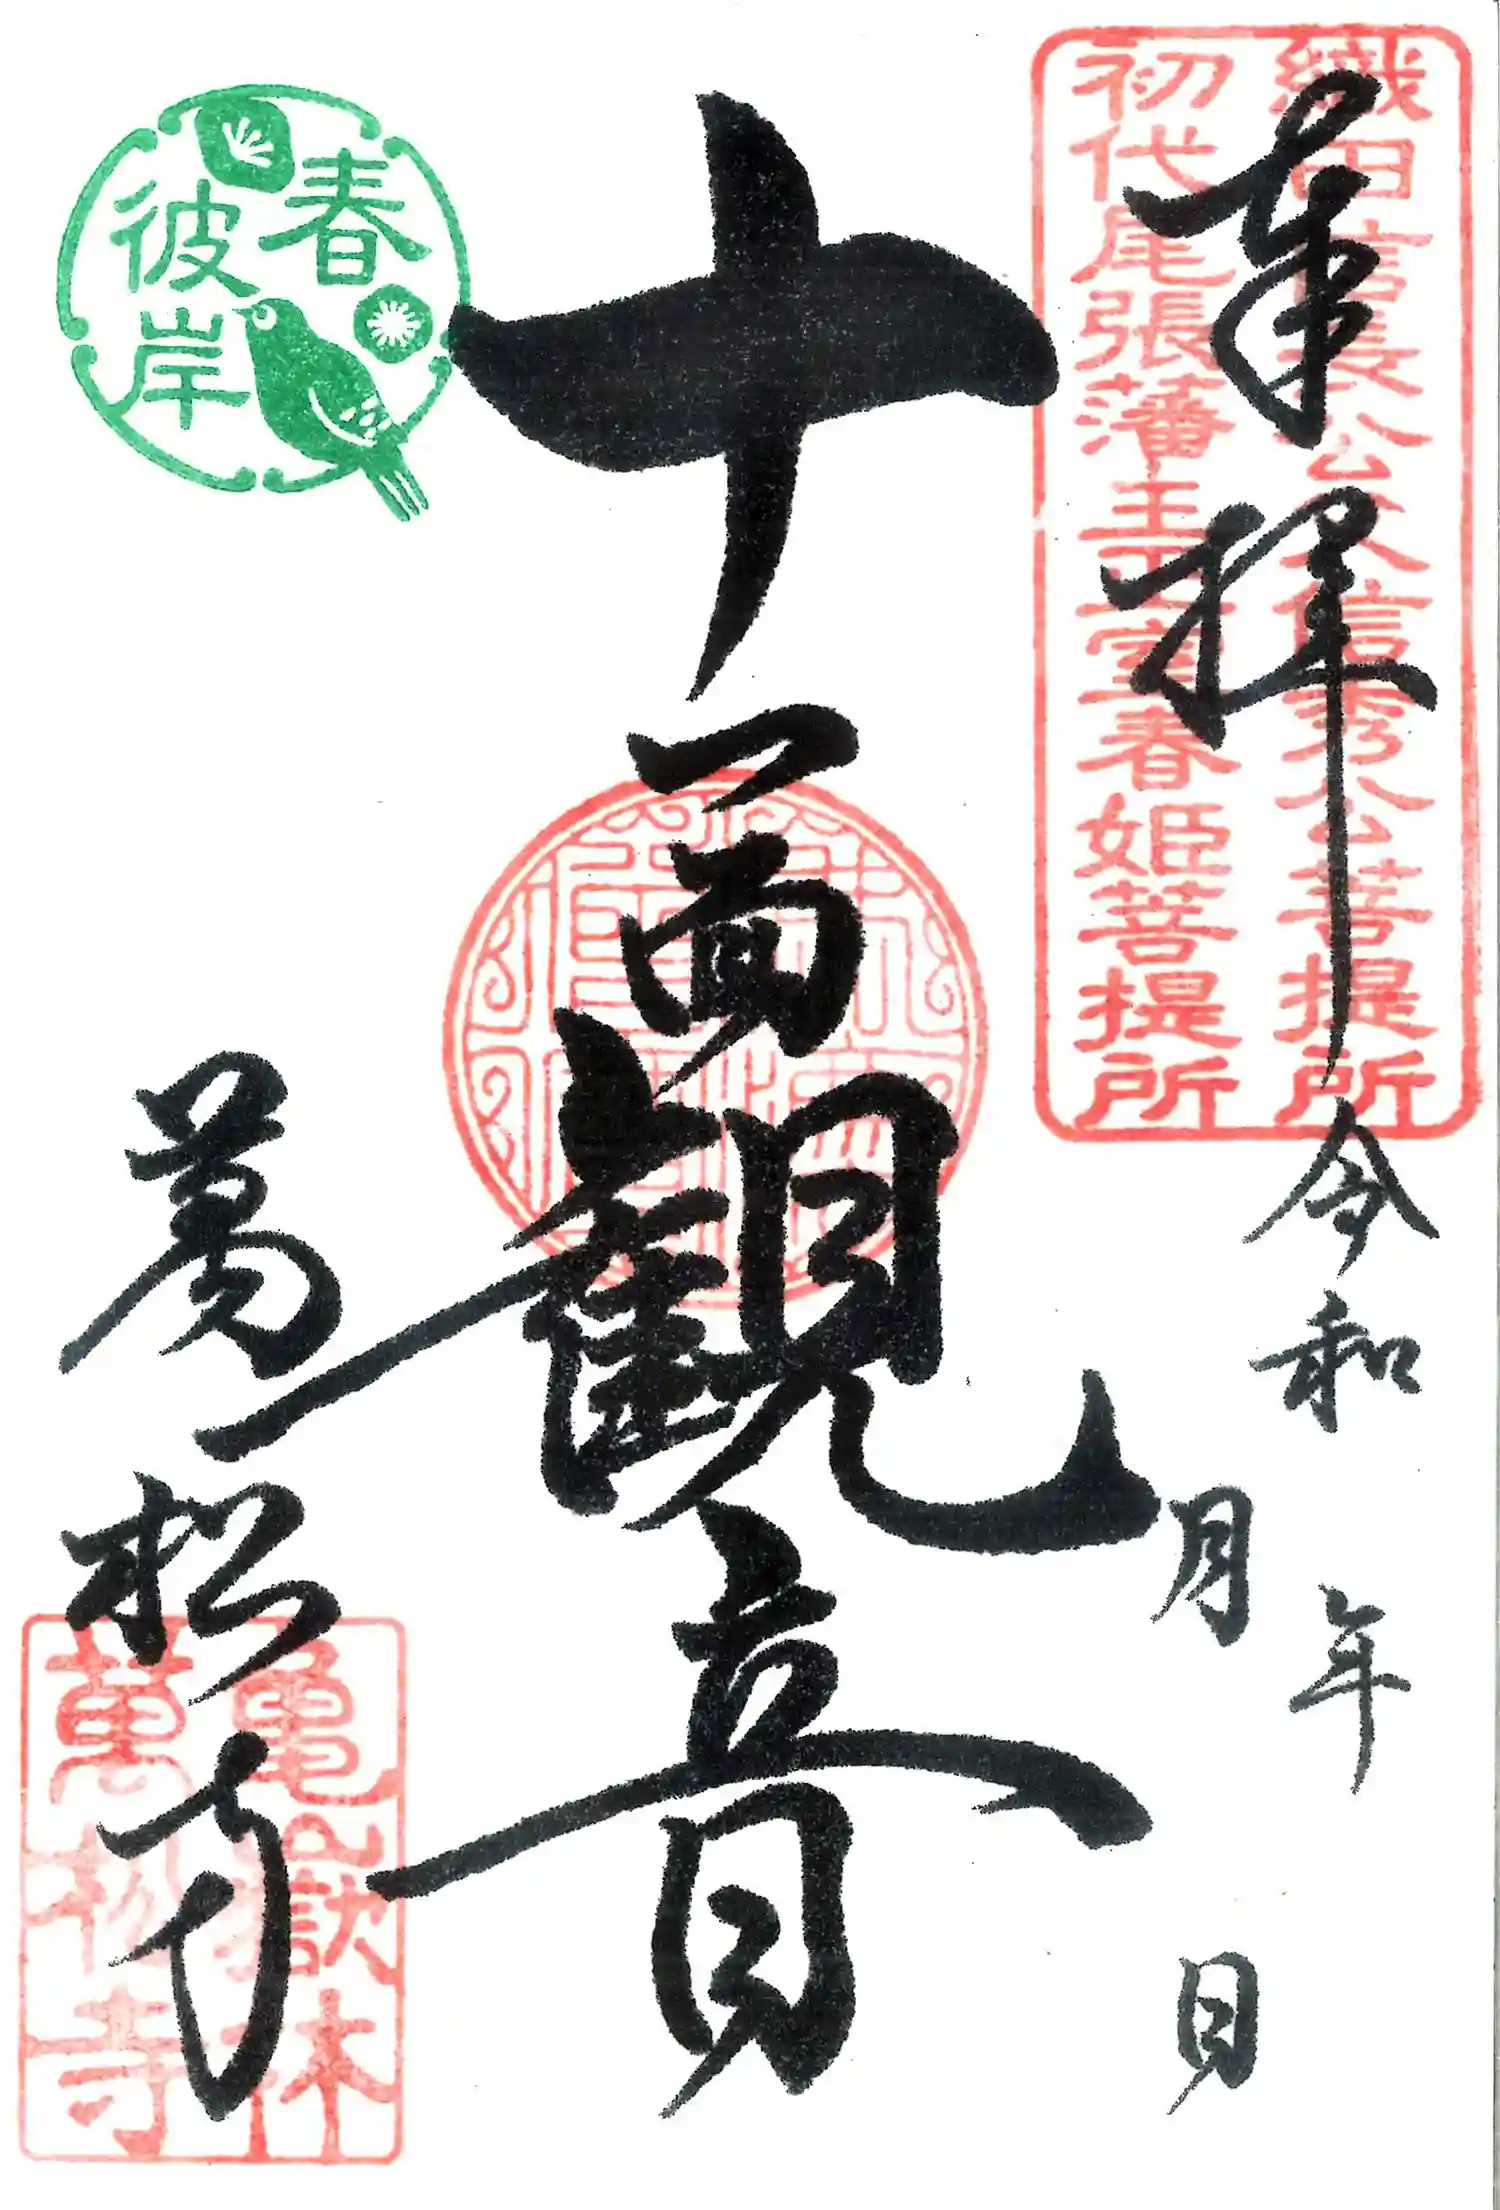 奉拝
織田信長公父信秀公菩提所
初代尾張藩主正室春姫菩提所
令和 年
月 日
十一面観音
春
彼岸
萬松寺
亀嶽林
萬松寺